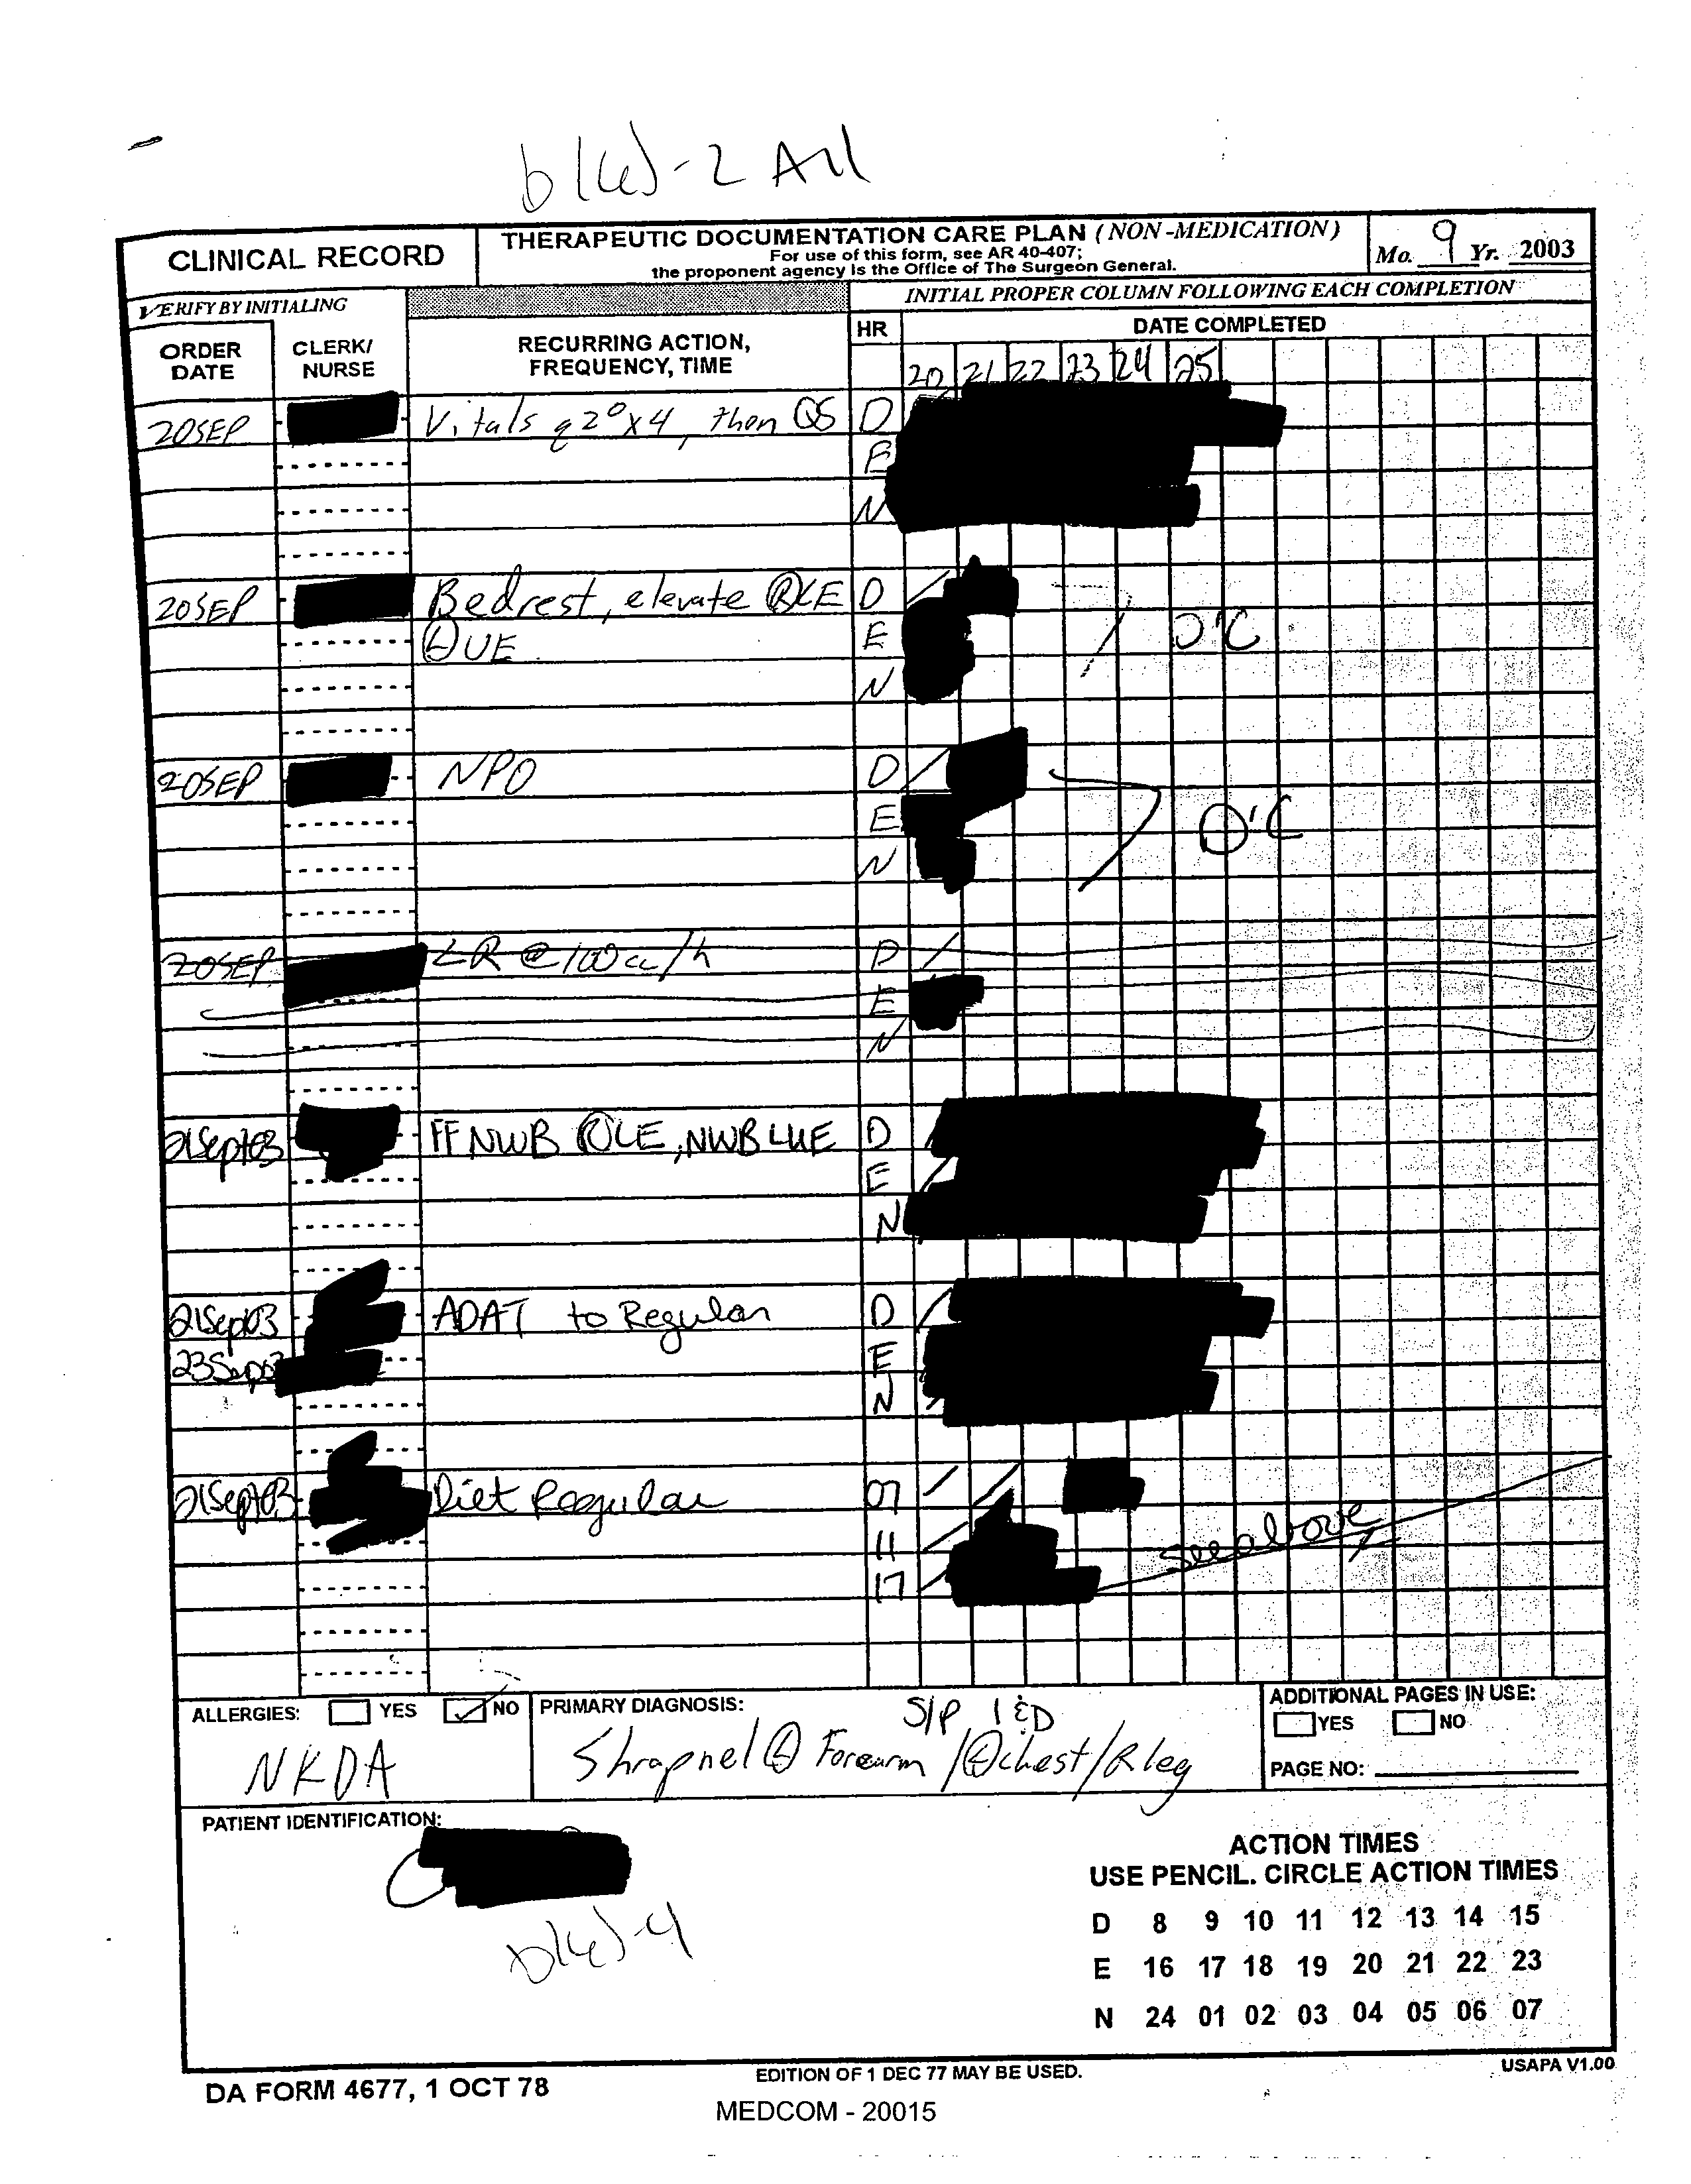 b(6)-2 All
CLINICAL RECORD
THERAPEUTIC DOCUMENTATION CARE PLAN (NON-MEDICATION)
For use of this form, see AR 40-407;
the proponent agency is the Office of The Surgeon General.
Mo. 9 Yr. 2003
VERIFY BY INITIALING
INITIAL PROPER COLUMN FOLLOWING EACH COMPLETION
ORDER DATE
CLERK/ NURSE
RECURRING ACTION, FREQUENCY, TIME
HR
DATE COMPLETED
20 21 22 23 24 25
20SEP Vitals q2° x4, then QS D
E
N
20SEP Bedrest, elevate Ⓡ LE D
Ⓛ UE E D'C
N
20SEP NPO D
E D'C
N
20SEP LR @ 100cc/h D
E
N
21Sept03 FF NWB Ⓡ LE, NWB LUE D
E
N
21Sept03 ADAT to Regular D
23Sep03 E
N
21Sept03 Diet Regular 07
11 see above
17
ALLERGIES: YES NO
NKDA
PRIMARY DIAGNOSIS:
S/P I&D
Shrapnel Ⓛ Forearm / Ⓛ chest / R leg
ADDITIONAL PAGES IN USE:
YES NO
PAGE NO:
PATIENT IDENTIFICATION:
b(6)-4
ACTION TIMES
USE PENCIL. CIRCLE ACTION TIMES
D 8 9 10 11 12 13 14 15
E 16 17 18 19 20 21 22 23
N 24 01 02 03 04 05 06 07
DA FORM 4677, 1 OCT 78
EDITION OF 1 DEC 77 MAY BE USED.
USAPA V1.00
MEDCOM - 20015